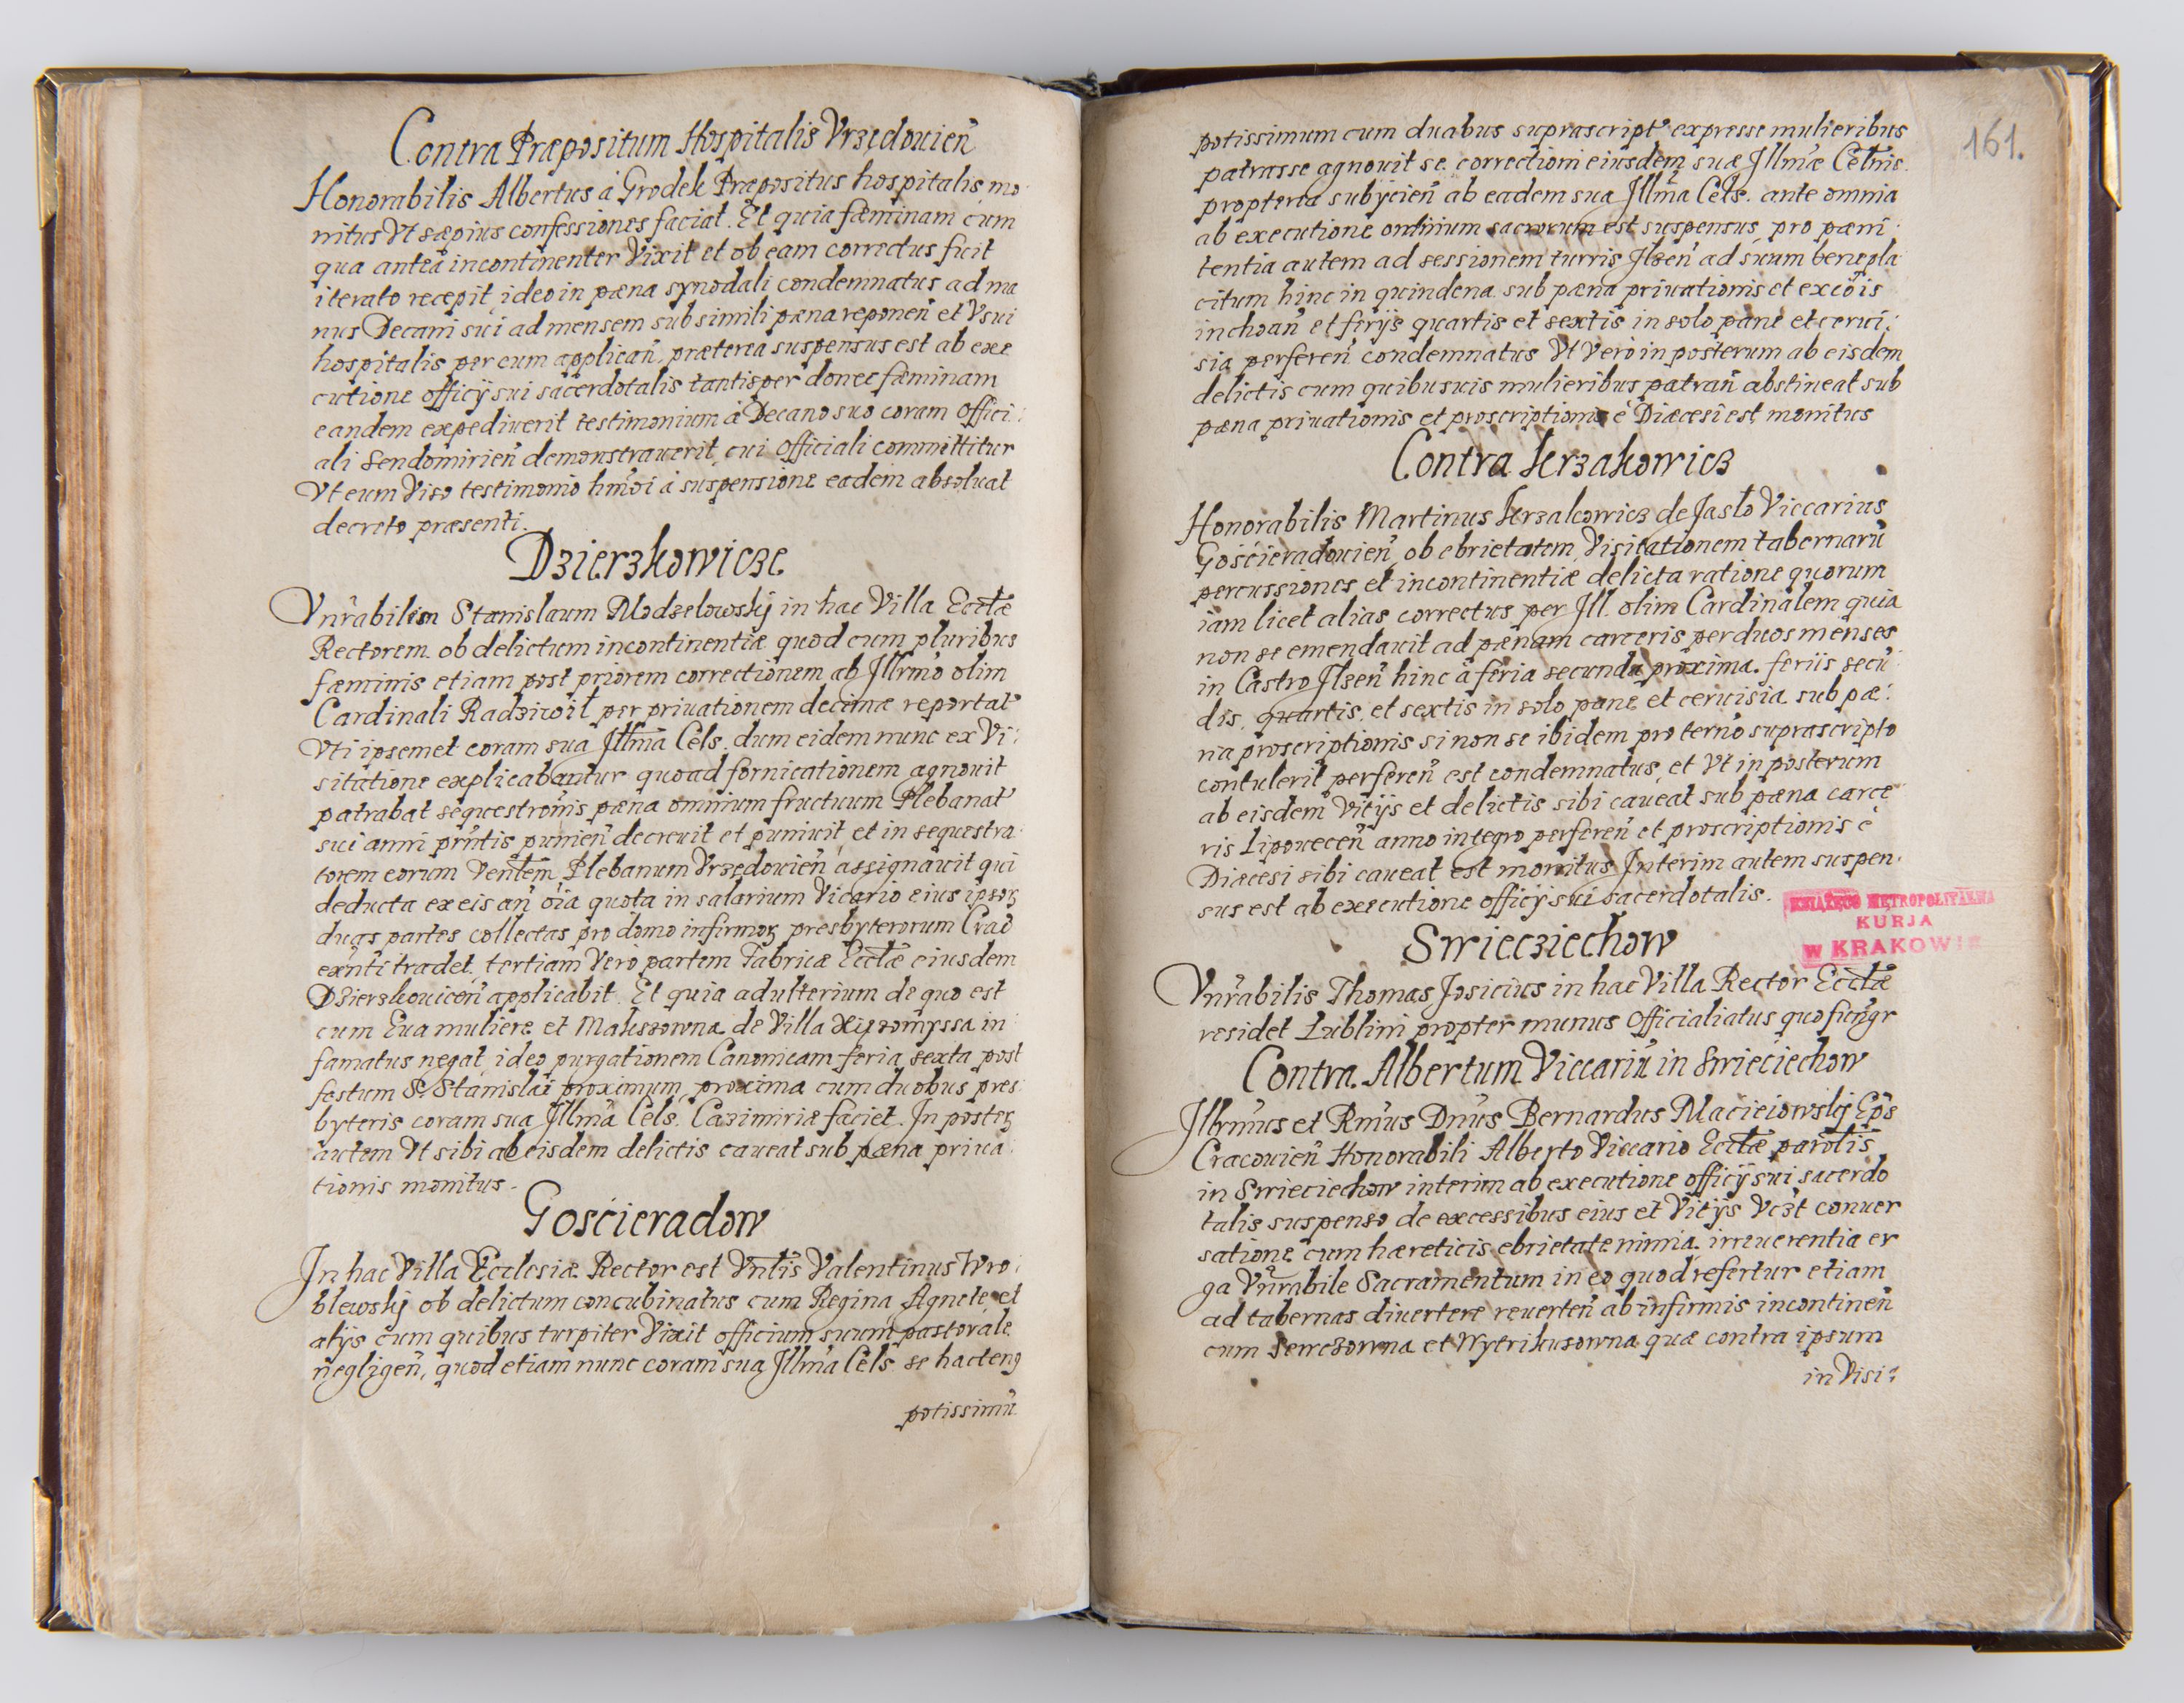 Contra Præpositum Hospitalis Vrzędouien̄
Honorabilis Albertus à Grodek Præpositus hospitalis mo
nitus Vt sæpius confessiones faciat. Et quia fæminam cum
qua anteà incontinenter Vixit et ob eam correctus fuit
iterato recepit, ideo in pæna synodali condemnatus ad ma
nus Decani sui ad mensem sub simili pæna reponen̄ et Vsui
hospitalis per eum applican̄, præterea suspensus est ab exe
cutione officÿ sui sacerdotalis tantisper donec fæminam
eandem expediuerit testimonium à Decano suo coram offici:
ali Sendomirien̄ demonstrauerit, cui Officiali committitur
Vt eum Viso testimonio hm̄oi à suspensione eadem absoluat
decreto præsenti.
Dzierzkowicze
Vnr̄abilem Stanislaum Modzelowskÿ in hac Villa Eccl̄æ
Rectorem ob delictum incontinentiæ quod cum pluribus
fæminis etiam post priorem correctionem ab Illrmo olim
Cardinali Radziwił per priuationem decimæ reportat'
Vti ipsemet coram sua Illm̄a Cels. dum eidem nunc ex Vi:
sitatione explicabantur quoad fornicationem agnouit
patrabat sequestrōnis pæna omnium fructuum Plebanat'
sui anni prn̄tis punien̄ decreuit et puniuit, et in sequestra
torem eorum Ven̄tem Plebanum Vrzędouien̄ assignauit qui
deducta ex eis an̄ oīa quota in salarium Vicario eius ipsoꝝ
duas partes collectas pro domo infirmoꝝ presbyterorum Crac̄
exn̄ti tradet, tertiam Verò partem Fabricæ Eccl̄æ eiusdem
Dzierzkouicen̄ applicabit. Et quia adulterium de quo est
cum Eua muliere et Makszowna de Villa in
famatus negat, ideo purgationem Canonicam feria sexta post
festum S. Stanislai proximum, proxima cum duobus pres
byteris coram sua Illm̄a Cels. Casimiriæ faciet. In posteꝝ
autem Vt sibi ab eisdem delictis caueat sub pæna priua
tionis monitus.
Gościeradow
In hac Villa Ecclesiæ Rector est Vnl̄is Valentinus Wro:
blewskÿ ob delictum concubinatus cum Regina Agnete et
alÿs cum quibus turpiter Vixit officium suum pastorale
negligen̄, quod etiam nunc coram sua Illm̄a Cels. se hacteng
potissimū
161.
potissimum cum duabus suprascript' expresse mulieribus
patrasse agnouit se correctioni eiusdem suæ Illm̄æ Celn̄is
propterea subÿcien̄ ab eadem sua Illm̄a Cels. ante omnia
ab executione ordinum sacrorum est suspensus, pro pæni
tentia autem ad sessionem turris Ilzen̄ ad suum benepla
citum hinc in quindena sub pæna priuationis et excōis
inchoan̄ et ferÿs quartis et sextis in solo pane et cerui:
sia perferen̄ condemnatus Vt Verò in posterum ab eisdem
delictis cum quibusuis mulieribus patran̄ abstineat sub
pæna priuationis et proscriptionis è Diæcesi est monitus
Contra Krzakowicz
Honorabilis Martinus Krzakowicz de Jasło Viccarius
Gościeradouien̄ ob ebrietatem, Visitationem tabernarū
percussiones, et incontinentiæ delicta ratione quorum
iam licet alias correctus per Ill. olim Cardinalem quia
non se emendauit ad pænam carceris per duos menses
in Castro Ilzen̄ hinc à feria secunda proxima feriis secū
dis, quartis, et sextis in solo pane et ceruisia sub pæ:
na proscriptionis si non se ibidem pro term̄o suprascripto
contulerit perferen̄ est condemnatus, et Vt in posterum
ab eisdem Vitÿs et delictis sibi caueat sub pæna carce
ris Lipouecen̄ anno integro perferen̄ et proscriptionis è
Diæcesi sibi caueat est monitus Interim autem suspen
sus est ab executione officÿ sui sacerdotalis.
KSIĄŻĘCO METROPOLITALNA
KURJA
w KRAKOWIE
Swiecziechow
Vnr̄abilis Thomas Josicius in hac Villa Rector Eccl̄æ
residet Lublini propter munus Officialiatus quo fungr̄
Contra Albertum Viccariū in Swieciechow
Illrmus et Rm̄us Dn̄us Bernardus Macieiowskÿ Ep̄s
Cracouien̄ Honorabili Alberto Viccario Eccl̄æ parōlis
in Swieciechow interim ab executione officÿ sui sacerdo
talis suspenso de excessibus eius et Vitÿs Vczt conuer
satione cum hæreticis ebrietate nimia irreuerentia er
ga Vnr̄abile Sacramentum in eo quod refertur etiam
ad tabernas diuertere reuerten̄ ab infirmis incontinen̄
cum Sewczowna et Wytrikusowna quæ contra ipsum
in Visi: